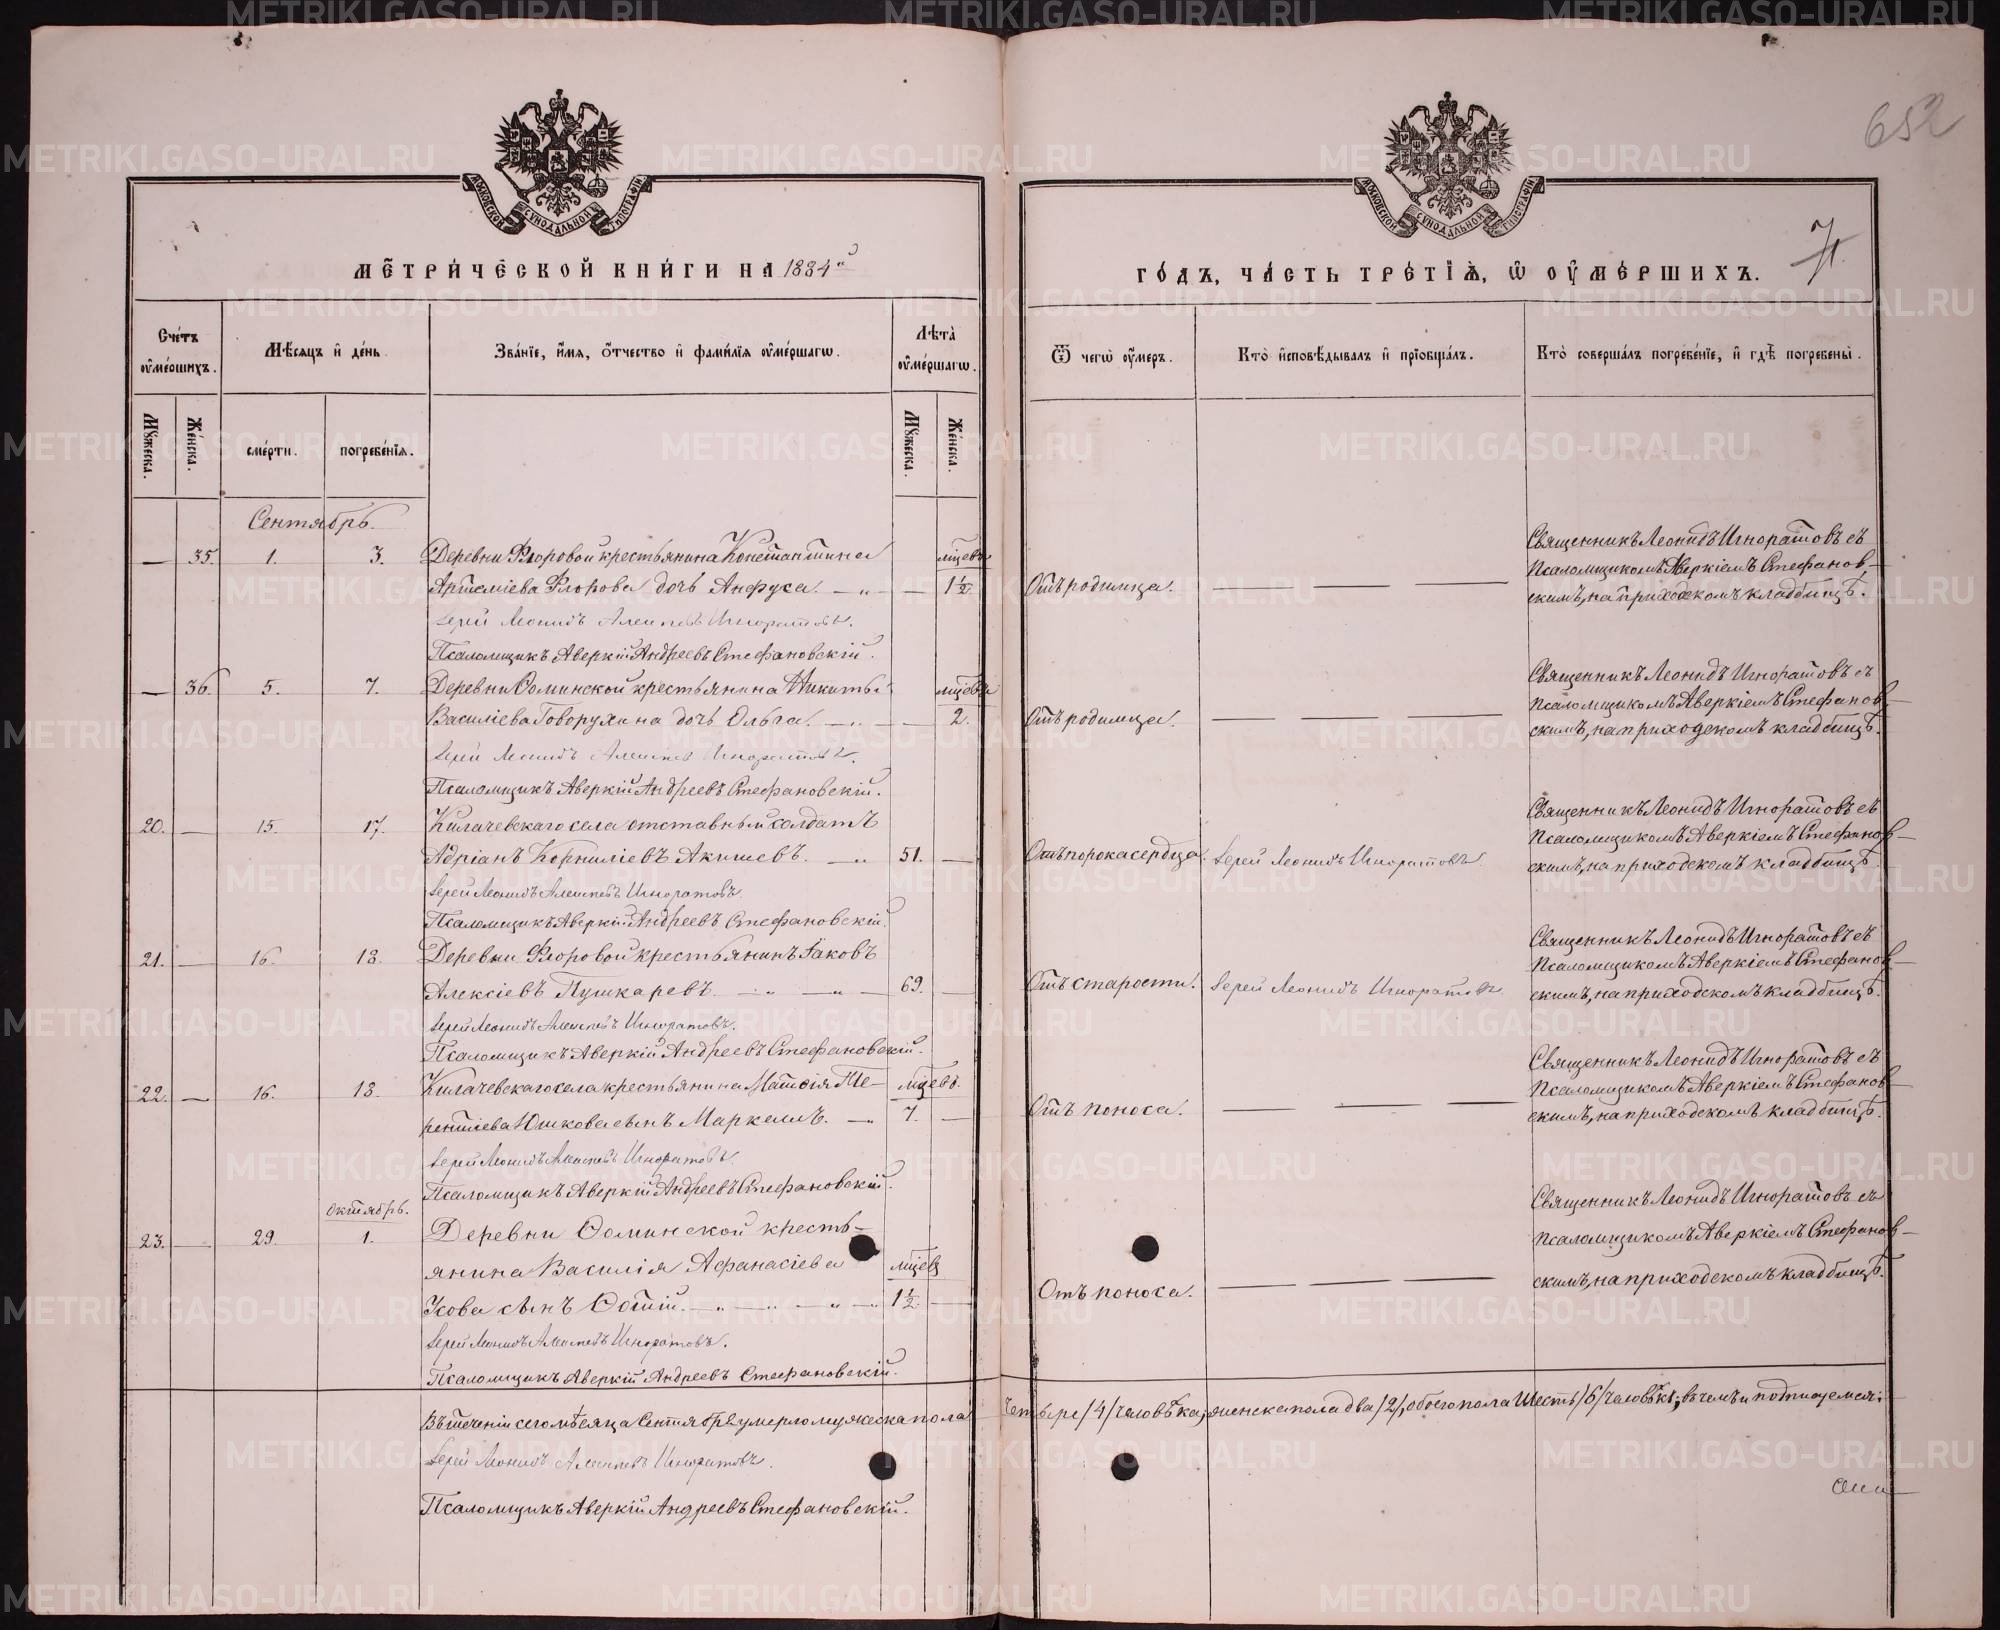 652
МОСКОВСКОЙ СѴНОДАЛЬНОЙ ТИПОГРАФІИ
МОСКОВСКОЙ СѴНОДАЛЬНОЙ ТИПОГРАФІИ
МЕТРИЧЕСКОЙ КНИГИ НА 1884й
ГОДЪ, ЧАСТЬ ТРЕТІЯ, Ѿ ОУМЕРШИХЪ.
Счетъ оумершихъ.
Мѣсяцъ и день.
Званіе, имя, отчество и фамилія оумершагѡ.
Лѣта оумершагѡ.
Ѿ чегѡ оумеръ.
Кто исповѣдывалъ и пріобщалъ.
Кто совершалъ погребеніе, и гдѣ погребены.
Мужеска.
Женска.
смерти.
погребенія.
Мужеска.
Женска.
Сентябрь.
— 35. 1. 3. Деревни Флоровой крестьянина Константина мцевъ
Артеміева Флорова дочь Анфуса. — „ — — 1½
Іерей Леонидъ Алексѣевъ Игноратовъ.
Псаломщикъ Аверкій Андреевъ Стефановскій.
Отъ родимца. — — —
Священникъ Леонидъ Игноратовъ съ
Псаломщикомъ Аверкіемъ Стефанов-
скимъ, на приходскомъ кладбищѣ.
— 36. 5. 7. Деревни Соминской крестьянина Никиты мцевъ
Василіева Говорухина дочь Ольга. — „ — — 2.
Іерей Леонидъ Алексѣевъ Игноратовъ.
Псаломщикъ Аверкій Андреевъ Стефановскій.
Отъ родимца. — — —
Священникъ Леонидъ Игноратовъ съ
Псаломщикомъ Аверкіемъ Стефанов-
скимъ, на приходскомъ кладбищѣ.
20. — 15. 17. Килачевскаго села отставный солдатъ
Адріанъ Корниліевъ Акишевъ. — „ 51. —
Іерей Леонидъ Алексѣевъ Игноратовъ
Псаломщикъ Аверкій Андреевъ Стефановскій.
Отъ порока сердца. Іерей Леонидъ Игноратовъ.
Священникъ Леонидъ Игноратовъ съ
Псаломщикомъ Аверкіемъ Стефанов-
скимъ, на приходскомъ кладбищѣ.
21. — 16. 18. Деревни Флоровой крестьянинъ Іаковъ
Алексіевъ Пушкаревъ. — „ — „ — 69. —
Іерей Леонидъ Алексѣевъ Игноратовъ.
Псаломщикъ Аверкій Андреевъ Стефановскій.
Отъ старости. Іерей Леонидъ Игноратовъ.
Священникъ Леонидъ Игноратовъ съ
Псаломщикомъ Аверкіемъ Стефанов-
скимъ, на приходскомъ кладбищѣ.
22. — 16. 18. Килачевскаго села крестьянина Матѳія Те- мцевъ.
рентіева Юшкова сынъ Маркеллъ. — „ 7. —
Іерей Леонидъ Алексѣевъ Игноратовъ.
Псаломщикъ Аверкій Андреевъ Стефановскій.
Отъ поноса. — — —
Священникъ Леонидъ Игноратовъ съ
Псаломщикомъ Аверкіемъ Стефанов-
скимъ, на приходскомъ кладбищѣ.
Октябрь.
23. — 29. 1. Деревни Соминской кресть-
янина Василія Афанасіева мцевъ
Усова сынъ Фотій. — „ — „ — „ — 1½. —
Іерей Леонидъ Алексѣевъ Игноратовъ.
Псаломщикъ Аверкій Андреевъ Стефановскій.
Отъ поноса. — — —
Священникъ Леонидъ Игноратовъ съ
Псаломщикомъ Аверкіемъ Стефанов-
скимъ, на приходскомъ кладбищѣ.
Въ теченіи сего мѣсяца Сентября умерло мужеска пола четыре /4/ человѣка, женска пола два /2/, обоего пола шесть /6/ человѣкъ; въ чемъ и подписуемся:
Іерей Леонидъ Алексѣевъ Игноратовъ.
Псаломщикъ Аверкій Андреевъ Стефановскій.
METRIKI.GASO-URAL.RU